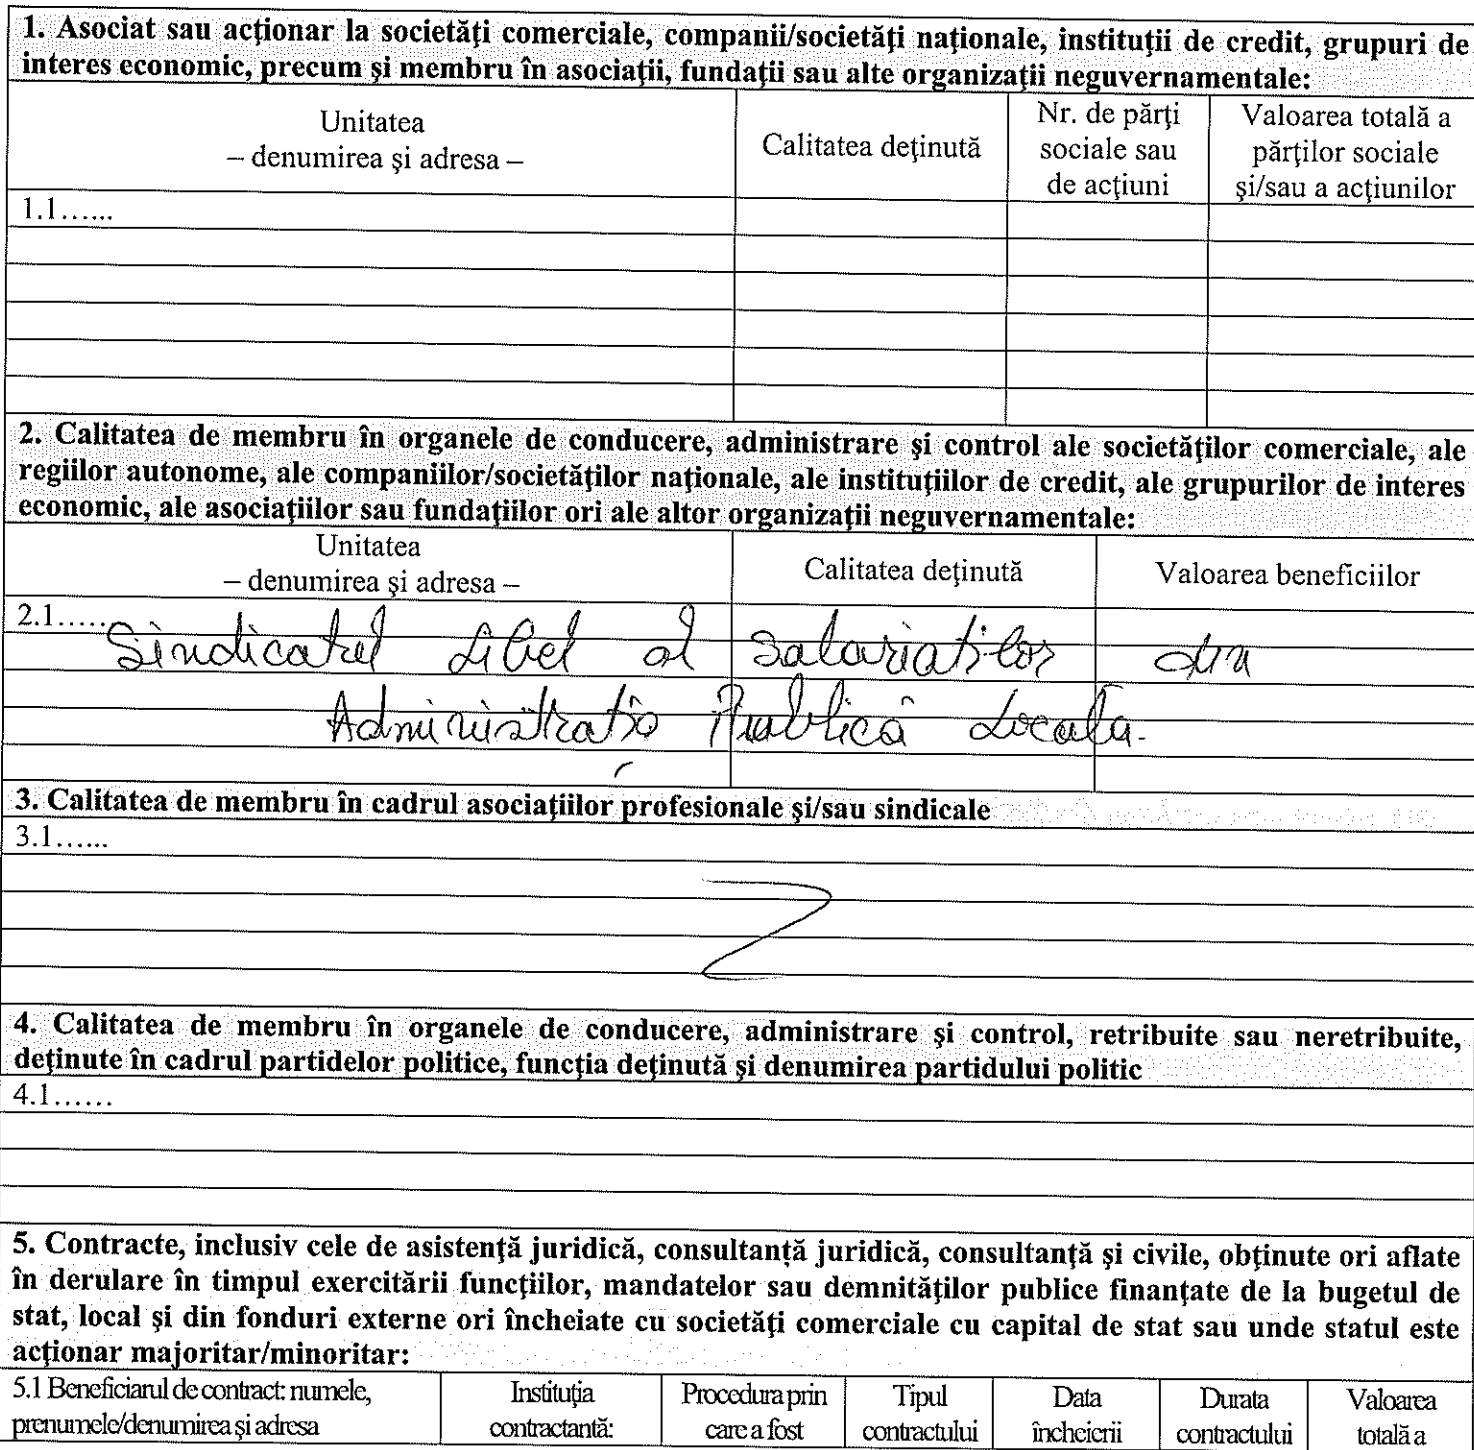 1. Asociat sau acţionar la societăţi comerciale, companii/societăţi naţionale, instituţii de credit, grupuri de
interes economic, precum şi membru în asociaţii, fundaţii sau alte organizaţii neguvernamentale:
Unitatea
– denumirea şi adresa –
Calitatea deţinută
Nr. de părţi
sociale sau
de acţiuni
Valoarea totală a
părţilor sociale
şi/sau a acţiunilor
1.1......
2. Calitatea de membru în organele de conducere, administrare şi control ale societăţilor comerciale, ale
regiilor autonome, ale companiilor/societăţilor naţionale, ale instituţiilor de credit, ale grupurilor de interes
economic, ale asociaţiilor sau fundaţiilor ori ale altor organizaţii neguvernamentale:
Unitatea
– denumirea şi adresa –
Calitatea deţinută
Valoarea beneficiilor
2.1......
Sindicatul Liber al salariaţilor din
Administraţia Publică Locala.
3. Calitatea de membru în cadrul asociaţiilor profesionale şi/sau sindicale
3.1......
4. Calitatea de membru în organele de conducere, administrare şi control, retribuite sau neretribuite,
deţinute în cadrul partidelor politice, funcţia deţinută şi denumirea partidului politic
4.1......
5. Contracte, inclusiv cele de asistenţă juridică, consultanţă juridică, consultanţă şi civile, obţinute ori aflate
în derulare în timpul exercitării funcţiilor, mandatelor sau demnităţilor publice finanţate de la bugetul de
stat, local şi din fonduri externe ori încheiate cu societăţi comerciale cu capital de stat sau unde statul este
acţionar majoritar/minoritar:
5.1 Beneficiarul de contract: numele,
prenumele/denumirea şi adresa
Instituţia
contractantă:
Procedura prin
care a fost
Tipul
contractului
Data
încheierii
Durata
contractului
Valoarea
totală a